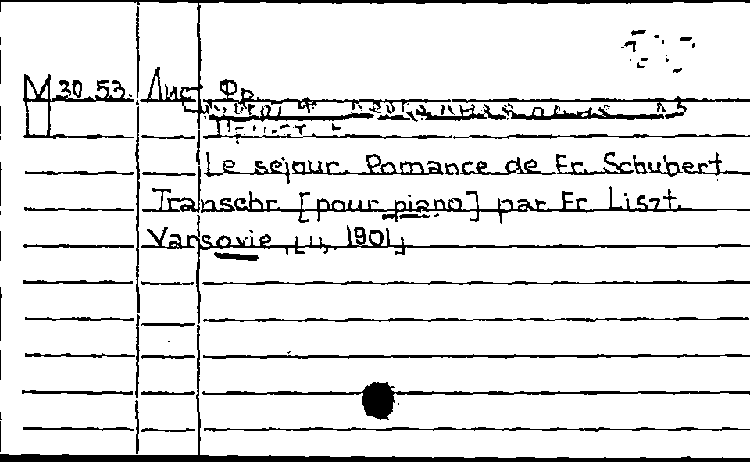 М 30.53. Лист Фр.
Le sejour. Romance de Fr. Schubert
Transcbr. [pour piano] par Fr. Liszt.
Varsovie, 1901